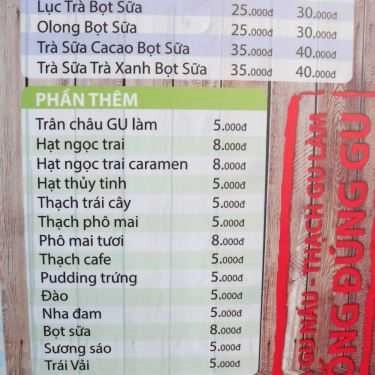 Lục Trà Bọt Sữa 25.000đ 30.000đ
Olong Bọt Sữa 25.000đ 30.000đ
Trà Sữa Cacao Bọt Sữa 35.000đ 40.000đ
Trà Sữa Trà Xanh Bọt Sữa 35.000đ 40.000đ
PHẦN THÊM
Trân châu GU làm 5.000đ
Hạt ngọc trai 8.000đ
Hạt ngọc trai caramen 8.000đ
Hạt thủy tinh 5.000đ
Thạch trái cây 5.000đ
Thạch phô mai 5.000đ
Phô mai tươi 8.000đ
Thạch cafe 5.000đ
Pudding trứng 5.000đ
Đào 5.000đ
Nha đam 5.000đ
Bọt sữa 8.000đ
Sương sáo 5.000đ
Trái Vải 5.000đ
GU NẤU - THẠCH GU LÀM
ĐÚNG GU